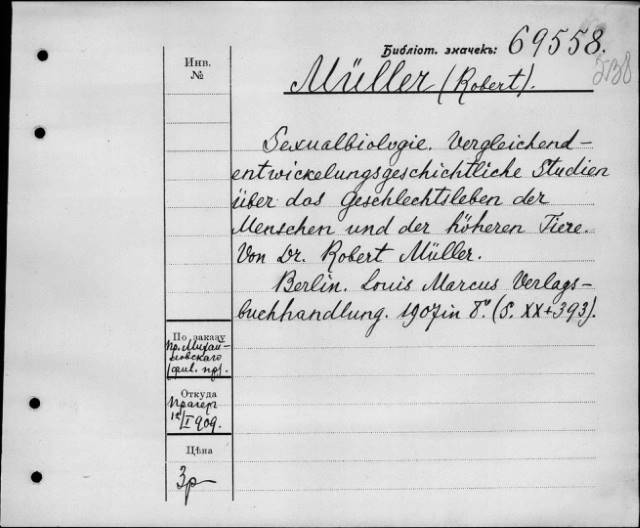 Библіот. значекъ: 69558.
Инв.
№
Müller (Robert).
Sexualbiologie. Vergleichend-
entwickelungsgeschichtliche Studien
über das Geschlechtsleben der
Menschen und der höheren Tiere.
Von Dr. Robert Müller.
Berlin. Louis Marcus Verlags-
buchhandlung. 1907 in 8º. (S. XX+393).
По заказу
пр. Михай-
ловскаго
Откуда
Прагеръ
I 909.
Цѣна
3р-